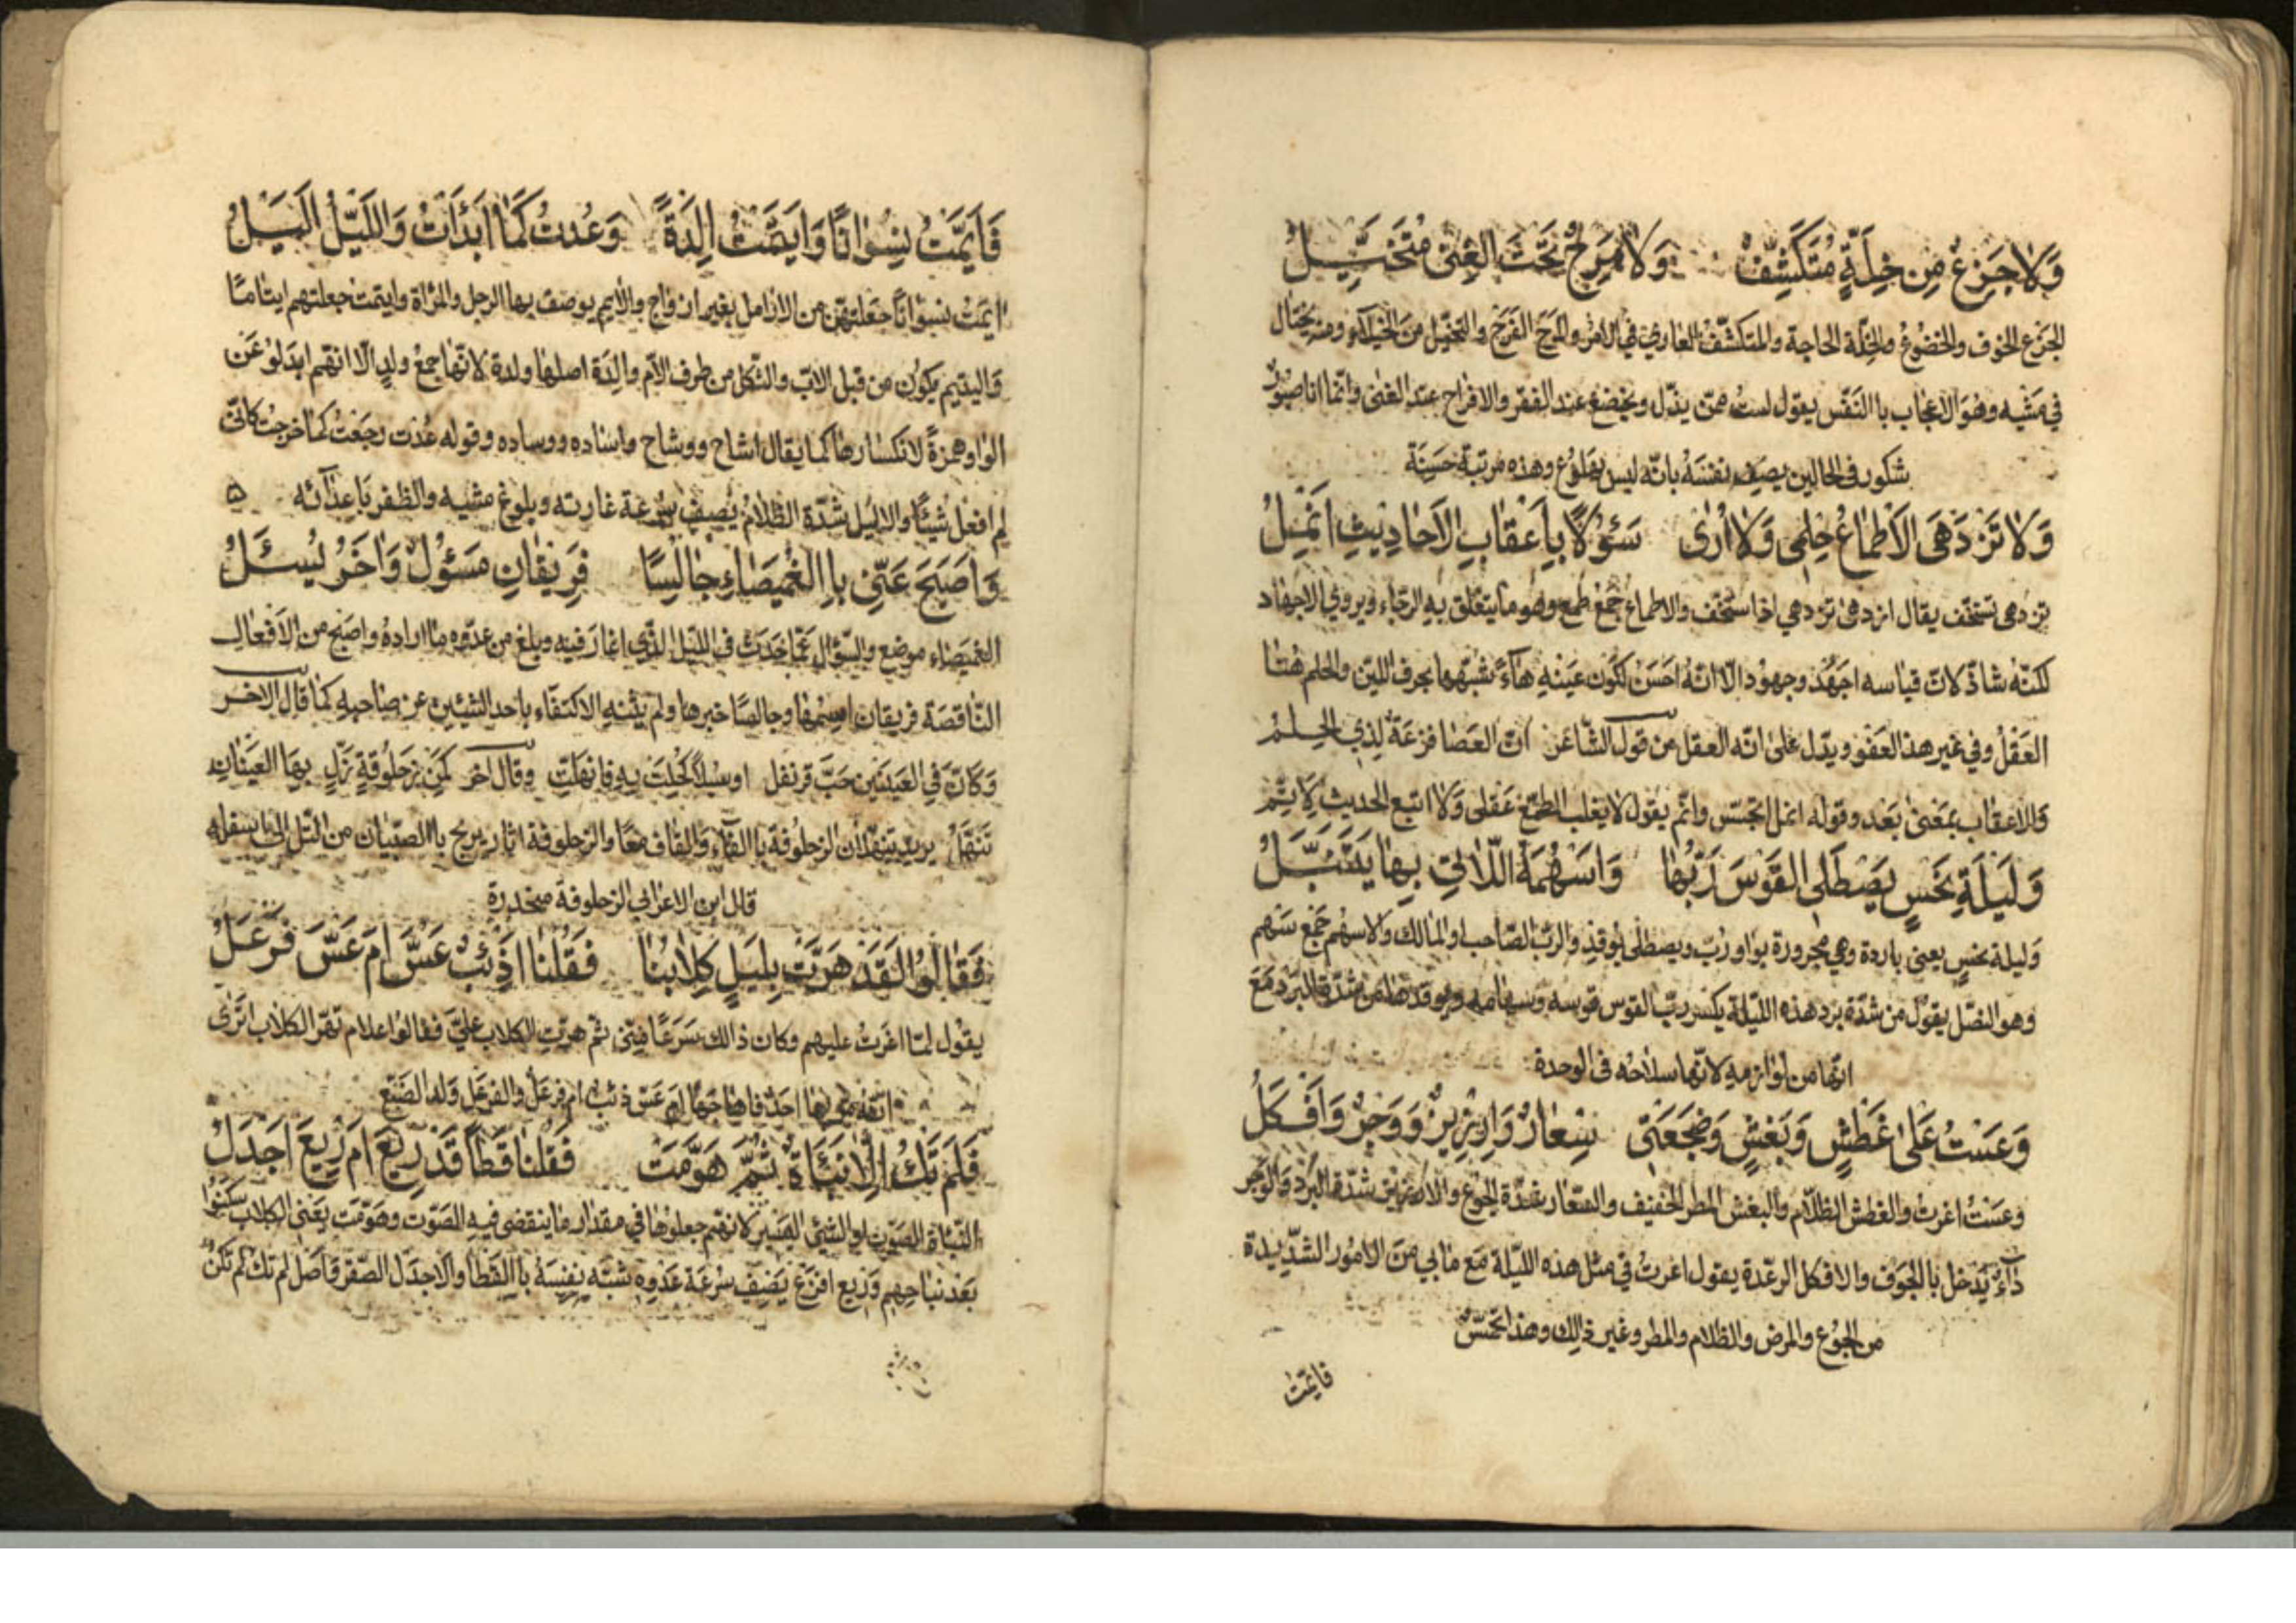 وَلَا جَزِعٌ مِن خِلَّةٍ مُتَكَشِّفٌ وَلَا مَرِحٌ تَحْتَ الغِنىٰ مُتَخَيِّلُ
الجزع الخوف والخضوع والخلّة الحاجة والمتكشّف العاري في الامر والمرح الفرح والتخيّل من الخيلاء ومنه يختال
في مشيه وهو الاعجاب باالنفس يقول لست ممّن يذّل ويخضع عند الفقر والافراح عند الغنى وانّما انا صبور
شكور فى الحالين يصف نفسه بانّه ليس بهلوع وهذه مرتبة حسنة
وَلَا تَزْدَهى الاَطْمَاعُ حِلمى وَلَا اُرىٰ سَؤُلًا بِاَعْقابِ الاَحَادِيثِ اَنْمِلُ
تزدهى تستخف يقال ازدهى تزدهي اذا استخف والاطماع جمع طمع وهو ما يتعلق به الرجاء ويروي الاجهاد
لكنّه شاذ لانّ قياسه اجهُد وجهود الّا انّه احسن لكون عينه هاءً تشبّهها بحرف اللين والحلم هُنا
العقل وفي غير هذا العفو ويدّل على انّه العقل من قول الشّاعر انّ العصا فزعة لِذي الحلم
والاعقاب بمعنى بعد وقوله انمل اتجسّس وانّم يقول لا يغلب الطمع عقلى ولا اتبع الحديث لا يتّم
وَلَيلَةِ نَحْسٍ يَصْطَلى القَوسَ رَبُّهَا وَاَسْهُمَهُ اللّاتِى بِهَا يَتَنَبَّلُ
وليلة نحسٍ يعنى باردة وهي مجرورة بواو رُبّ ويصطلى يوقد والربّ الصّاحب او المالك والاسهم جمع سهم
وهو النصل يقول من شدّة برد هذه الليلة يكسر ربّ القوس قوسه وسهامه ويوقدها من شدّة البرد مع
انّها من لوازمه لانّها سلاحه فى الوحدة
وَعَسْتُ عَلىٰ غَطْشٍ وَبَغْشٍ وَضَجْعَتى سُعَارٌ وَاِرْزِيزٌ وَوَجرٌ وَاَفْكَلُ
وعست اغرت والغطش الظلام والبغش المطر الخفيف والسّعار شدّة الجوع والارزيز شدّة البرد والوجر
داء يدخل باالجوف والافكل الرعدة يقول اغرتُ في مثل هذه الليلة مع ما بي من الامور الشّديدة
من الجوع والمرض والظلام والمطر وغير ذالك وهذا تحسّر
فايّمت
فَاَيَّمَتُ نِسْوَانًا وَاَيْتَمْتُ اِلدَةً وَعُدتُ كَمَا اَبْدَأتُ وَاللَّيلُ اَليَلُ
ايّمتُ نسوانًا جعلتهنّ من الارامل بغير ازواج والايّم يوصف بها الرجل والمرأة وايتمت جعلتهم ايتامًا
واليتيم يكون من قبل الاب والثكل من طرف الام والِدَة اصلها ولدة لانّها جمع ولدٍ الّا انّهم ابدلوا عن
الواو همزةً لانكسارها كما يقال اشاح ووشاح واساده ووساده وقوله عُدت رجعت كما خرجت كانّى
لم افعل شيئًا والاليل شدّة الظلام يصف سرعة غارته وبلوغ مشيه والظفر باعدائه ۵
وَاَصبَحَ عَنِّى بِاالغُمَيصَاءِ جَالِسًا فَرِيقَانِ مَسؤُلٌ وَاخَرُ يُسئَلُ
الغميصاء موضع والسّؤال عمّا حدث في الليل الذي اغار فيه وبلغ من عدّوه ما اراده واصبح من الافعال
النّاقصة فريقان اسمها وجالسًا خبرها ولم يثنه الاكتفاء باحد الشيئين عن صاحبه كما قال الاخر
وكانّ في العينين حبّ قرنفل او سنبلًا كحلت به فانهلّت وقال آخر لمن زحلوقةٍ زلّ بها العينان
تنهلّ يريد تنهلّان الزحلوفة باالفاء والقاف معًا والزحلوفة اثار يزيج باالصبيان من التل الى اسفله
قال ابن الاعرابى الزحلوفة منحدرة
فَقَالُوا لَقَد هَرَّت بِلَيلٍ كِلَابُنَا فَقُلنَا اَذِئبٌ عَسَّ اَم عَسَّ فُرعُلُ
يقول لمّا اغرت عليهم وكان ذالك سرعًا منى ثمّ هرّت الكلاب عليّ فقالوا علام تهرّ الكلاب اترى
احدٌ فاهاجها ام عسّ ذئب ام فرعل والفرعل ولد الضبع
فَلَم تَكُ اِلَّا نَبأَةٌ ثُمَّ هَوَّمَت فَقُلنَا قَطَاةٌ قَد رِيعَ اَم رِيعَ اَجدَلُ
النبأة الصوت او الشيئ اليسير لانهم جعلوها في مقدار ما ينقضى فيه الصوت وهوّمت يعنى الكلاب سكنوا
بعد نباحهم وريع افزع يصف سرعة عدوه شبّه نفسه باالقطا والاجدل الصقر فاصل لم تك لم تكن